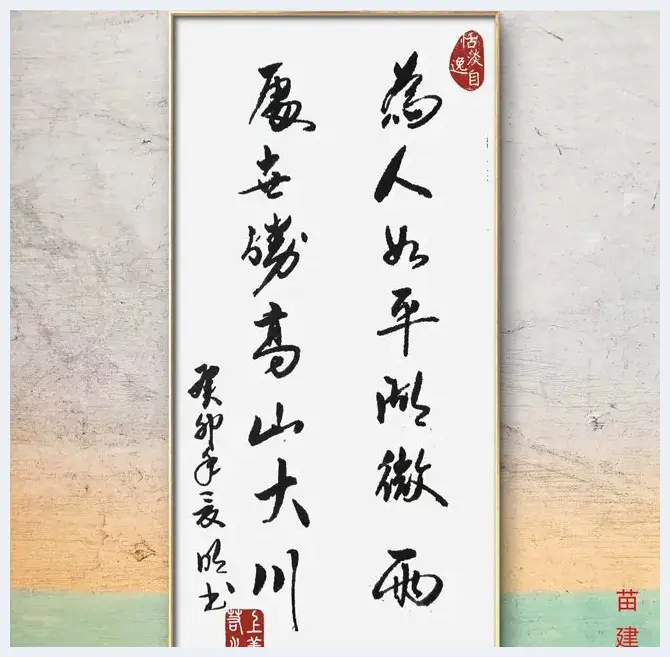 恬淡自逸
為人如平湖微雨
處世勝高山大川
癸卯年夏明书
苗建